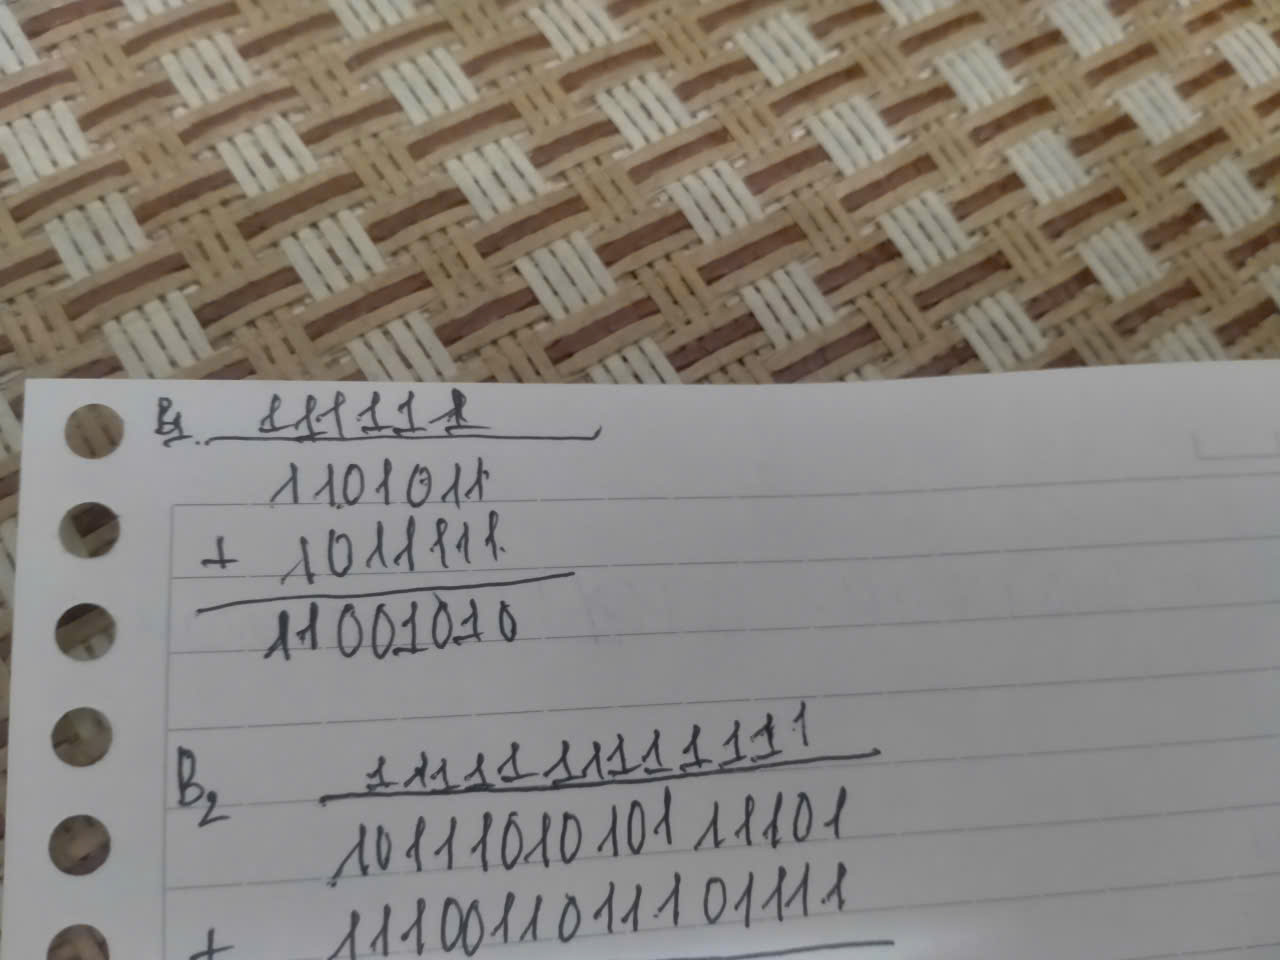 B1. 111111
1101011
+ 1011111
11001010
B2 1111111111111
1011101010111101
+ 1110011011101111